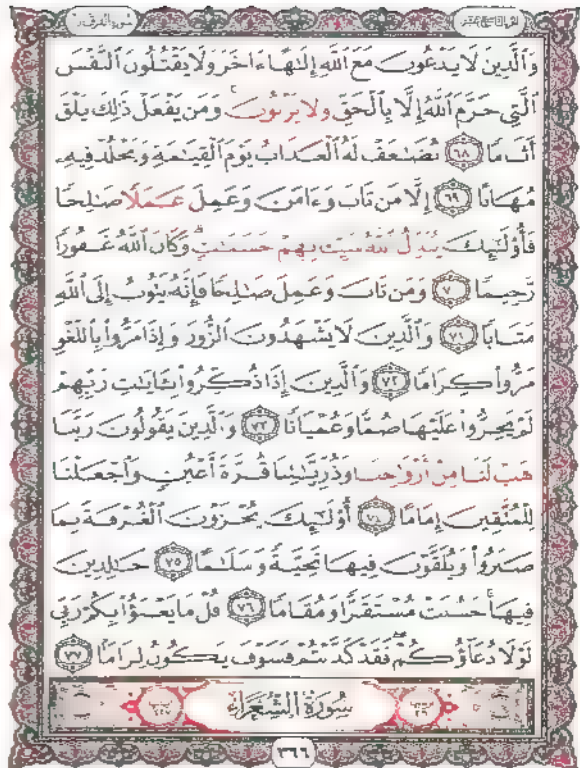 الجزء التاسع عشر
سورة الفرقان
وَٱلَّذِينَ لَا يَدْعُونَ مَعَ ٱللَّهِ إِلَٰهًا ءَاخَرَ وَلَا يَقْتُلُونَ ٱلنَّفْسَ
ٱلَّتِى حَرَّمَ ٱللَّهُ إِلَّا بِٱلْحَقِّ وَلَا يَزْنُونَ ۚ وَمَن يَفْعَلْ ذَٰلِكَ يَلْقَ
أَثَامًا ٦٨ يُضَٰعَفْ لَهُ ٱلْعَذَابُ يَوْمَ ٱلْقِيَٰمَةِ وَيَخْلُدْ فِيهِۦ
مُهَانًا ٦٩ إِلَّا مَن تَابَ وَءَامَنَ وَعَمِلَ عَمَلًا صَٰلِحًا
فَأُو۟لَٰٓئِكَ يُبَدِّلُ ٱللَّهُ سَيِّـَٔاتِهِمْ حَسَنَٰتٍ ۗ وَكَانَ ٱللَّهُ غَفُورًا
رَّحِيمًا ٧٠ وَمَن تَابَ وَعَمِلَ صَٰلِحًا فَإِنَّهُۥ يَتُوبُ إِلَى ٱللَّهِ
مَتَابًا ٧١ وَٱلَّذِينَ لَا يَشْهَدُونَ ٱلزُّورَ وَإِذَا مَرُّوا۟ بِٱللَّغْوِ
مَرُّوا۟ كِرَامًا ٧٢ وَٱلَّذِينَ إِذَا ذُكِّرُوا۟ بِـَٔايَٰتِ رَبِّهِمْ
لَمْ يَخِرُّوا۟ عَلَيْهَا صُمًّا وَعُمْيَانًا ٧٣ وَٱلَّذِينَ يَقُولُونَ رَبَّنَا
هَبْ لَنَا مِنْ أَزْوَٰجِنَا وَذُرِّيَّٰتِنَا قُرَّةَ أَعْيُنٍ وَٱجْعَلْنَا
لِلْمُتَّقِينَ إِمَامًا ٧٤ أُو۟لَٰٓئِكَ يُجْزَوْنَ ٱلْغُرْفَةَ بِمَا
صَبَرُوا۟ وَيُلَقَّوْنَ فِيهَا تَحِيَّةً وَسَلَٰمًا ٧٥ خَٰلِدِينَ
فِيهَا ۚ حَسُنَتْ مُسْتَقَرًّا وَمُقَامًا ٧٦ قُلْ مَا يَعْبَؤُا۟ بِكُمْ رَبِّى
لَوْلَا دُعَآؤُكُمْ ۖ فَقَدْ كَذَّبْتُمْ فَسَوْفَ يَكُونُ لِزَامًا ٧٧
سُورَةُ ٱلشُّعَرَاءِ
٣٦٦